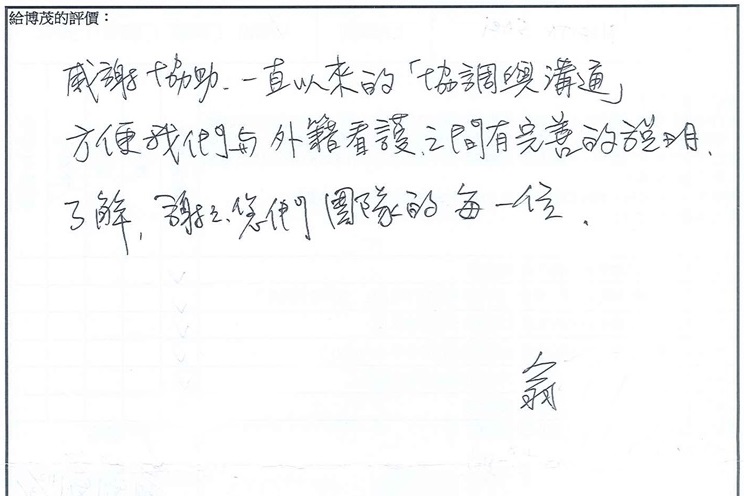 給博茂的評價：
感謝協助、一直以來的「協調與溝通」
方便我們與外籍看護之間有完善的說明、
了解，謝謝您們團隊的每一位．
翁